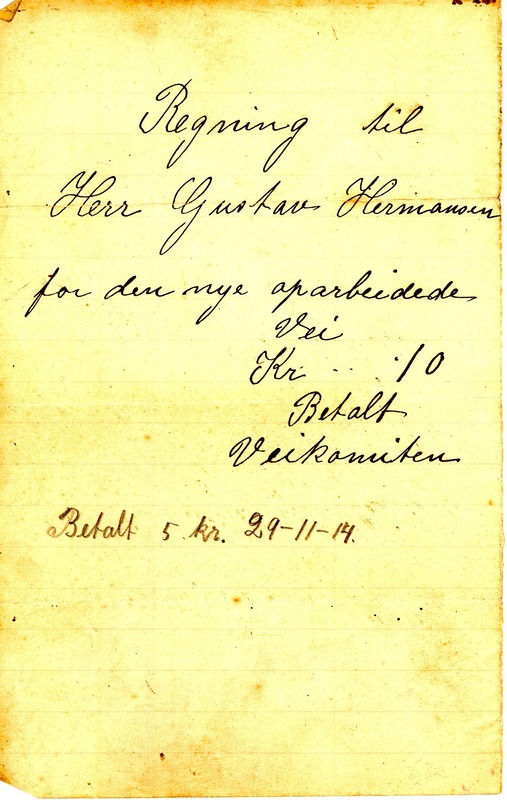 Regning til
Herr Gustav Hermansen
for den nye oparbeidede
Vei
Kr. . . . 10
Betalt
Veikomiten
Betalt 5 kr. 29-11-14.